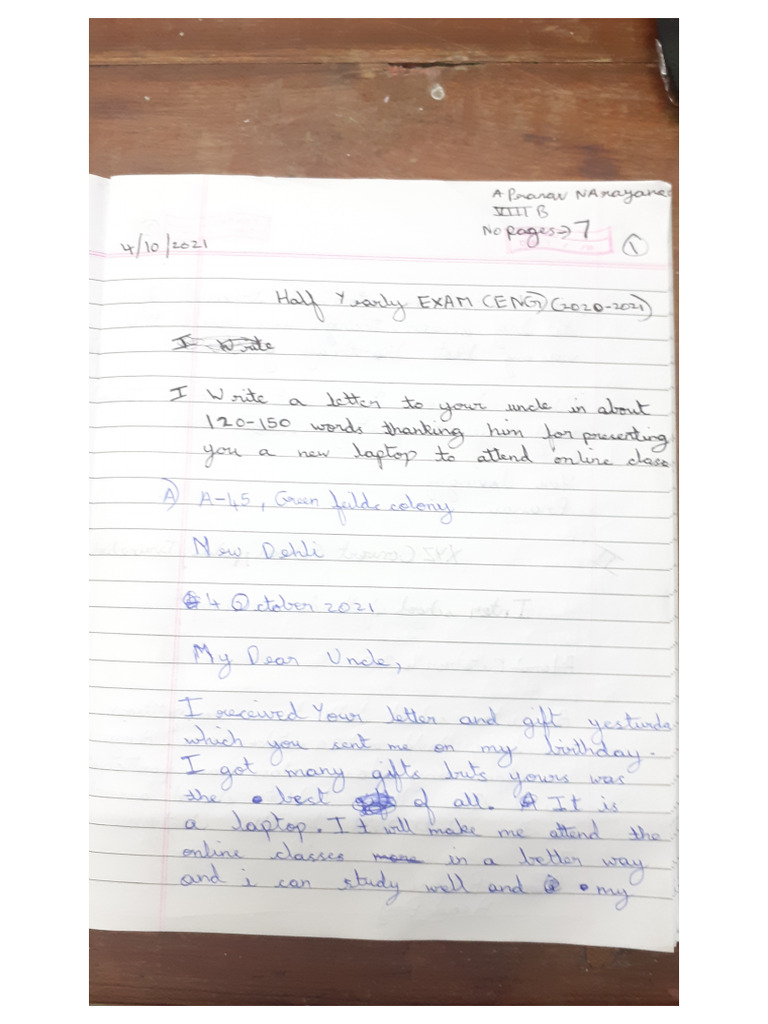 A Pranav NArayanan
VIII B
No pages→ 7
1
4/10/2021
Half Yearly EXAM (ENG) (2020-2021)
I Write
I Write a letter to your uncle in about
120-150 words thanking him for presenting
you a new laptop to attend online class
A) A-45, Green feilds colony
New Dehli
4 October 2021
My Dear Uncle,
I received Your letter and gift yesturda
which you sent me on my birthday.
I got many gifts buts yours was
the best of all. It is
a laptop. It will make me attend the
online classes more in a better way
and i can study well and my